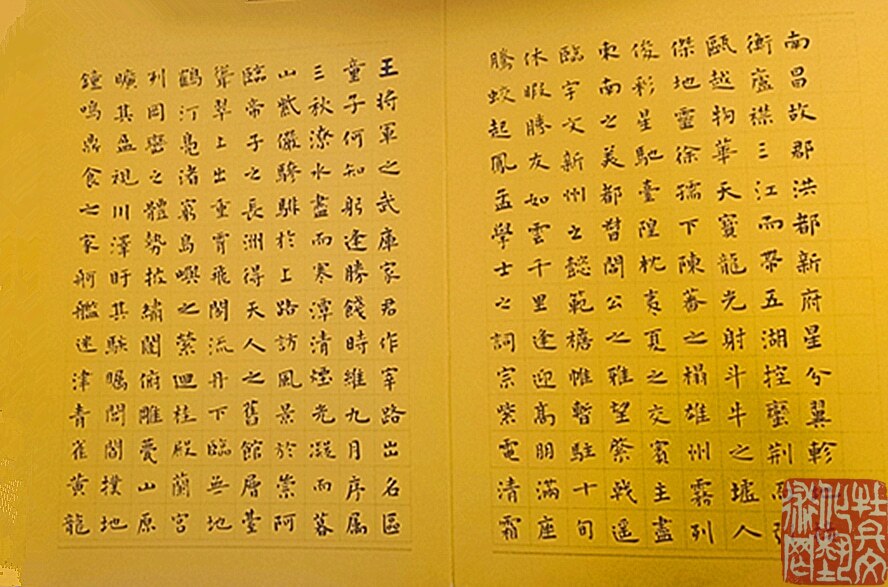 南昌故郡洪都新府星分翼軫
衡廬襟三江而帶五湖控蠻荊而引
甌越物華天寶龍光射斗牛之墟人
傑地靈徐孺下陳蕃之榻雄州霧列
俊彩星馳臺隍枕夷夏之交賓主盡
東南之美都督閻公之雅望棨戟遙
臨宇文新州之懿範襜帷暫駐十旬
休暇勝友如雲千里逢迎高朋滿座
騰蛟起鳳孟學士之詞宗紫電清霜
王將軍之武庫家君作宰路出名區
童子何知躬逢勝餞時維九月序属
三秋潦水盡而寒潭清煙光凝而暮
山紫儼驂騑於上路訪風景於崇阿
臨帝子之長洲得天人之舊館層臺
聳翠上出重霄飛閣流丹下臨無地
鶴汀鳧渚窮島嶼之縈迴桂殿蘭宮
列岡巒之體勢披繡闥俯雕甍山原
曠其盈視川澤盱其駭矚閭閻撲地
鐘鳴鼎食之家舸艦迷津青雀黃龍